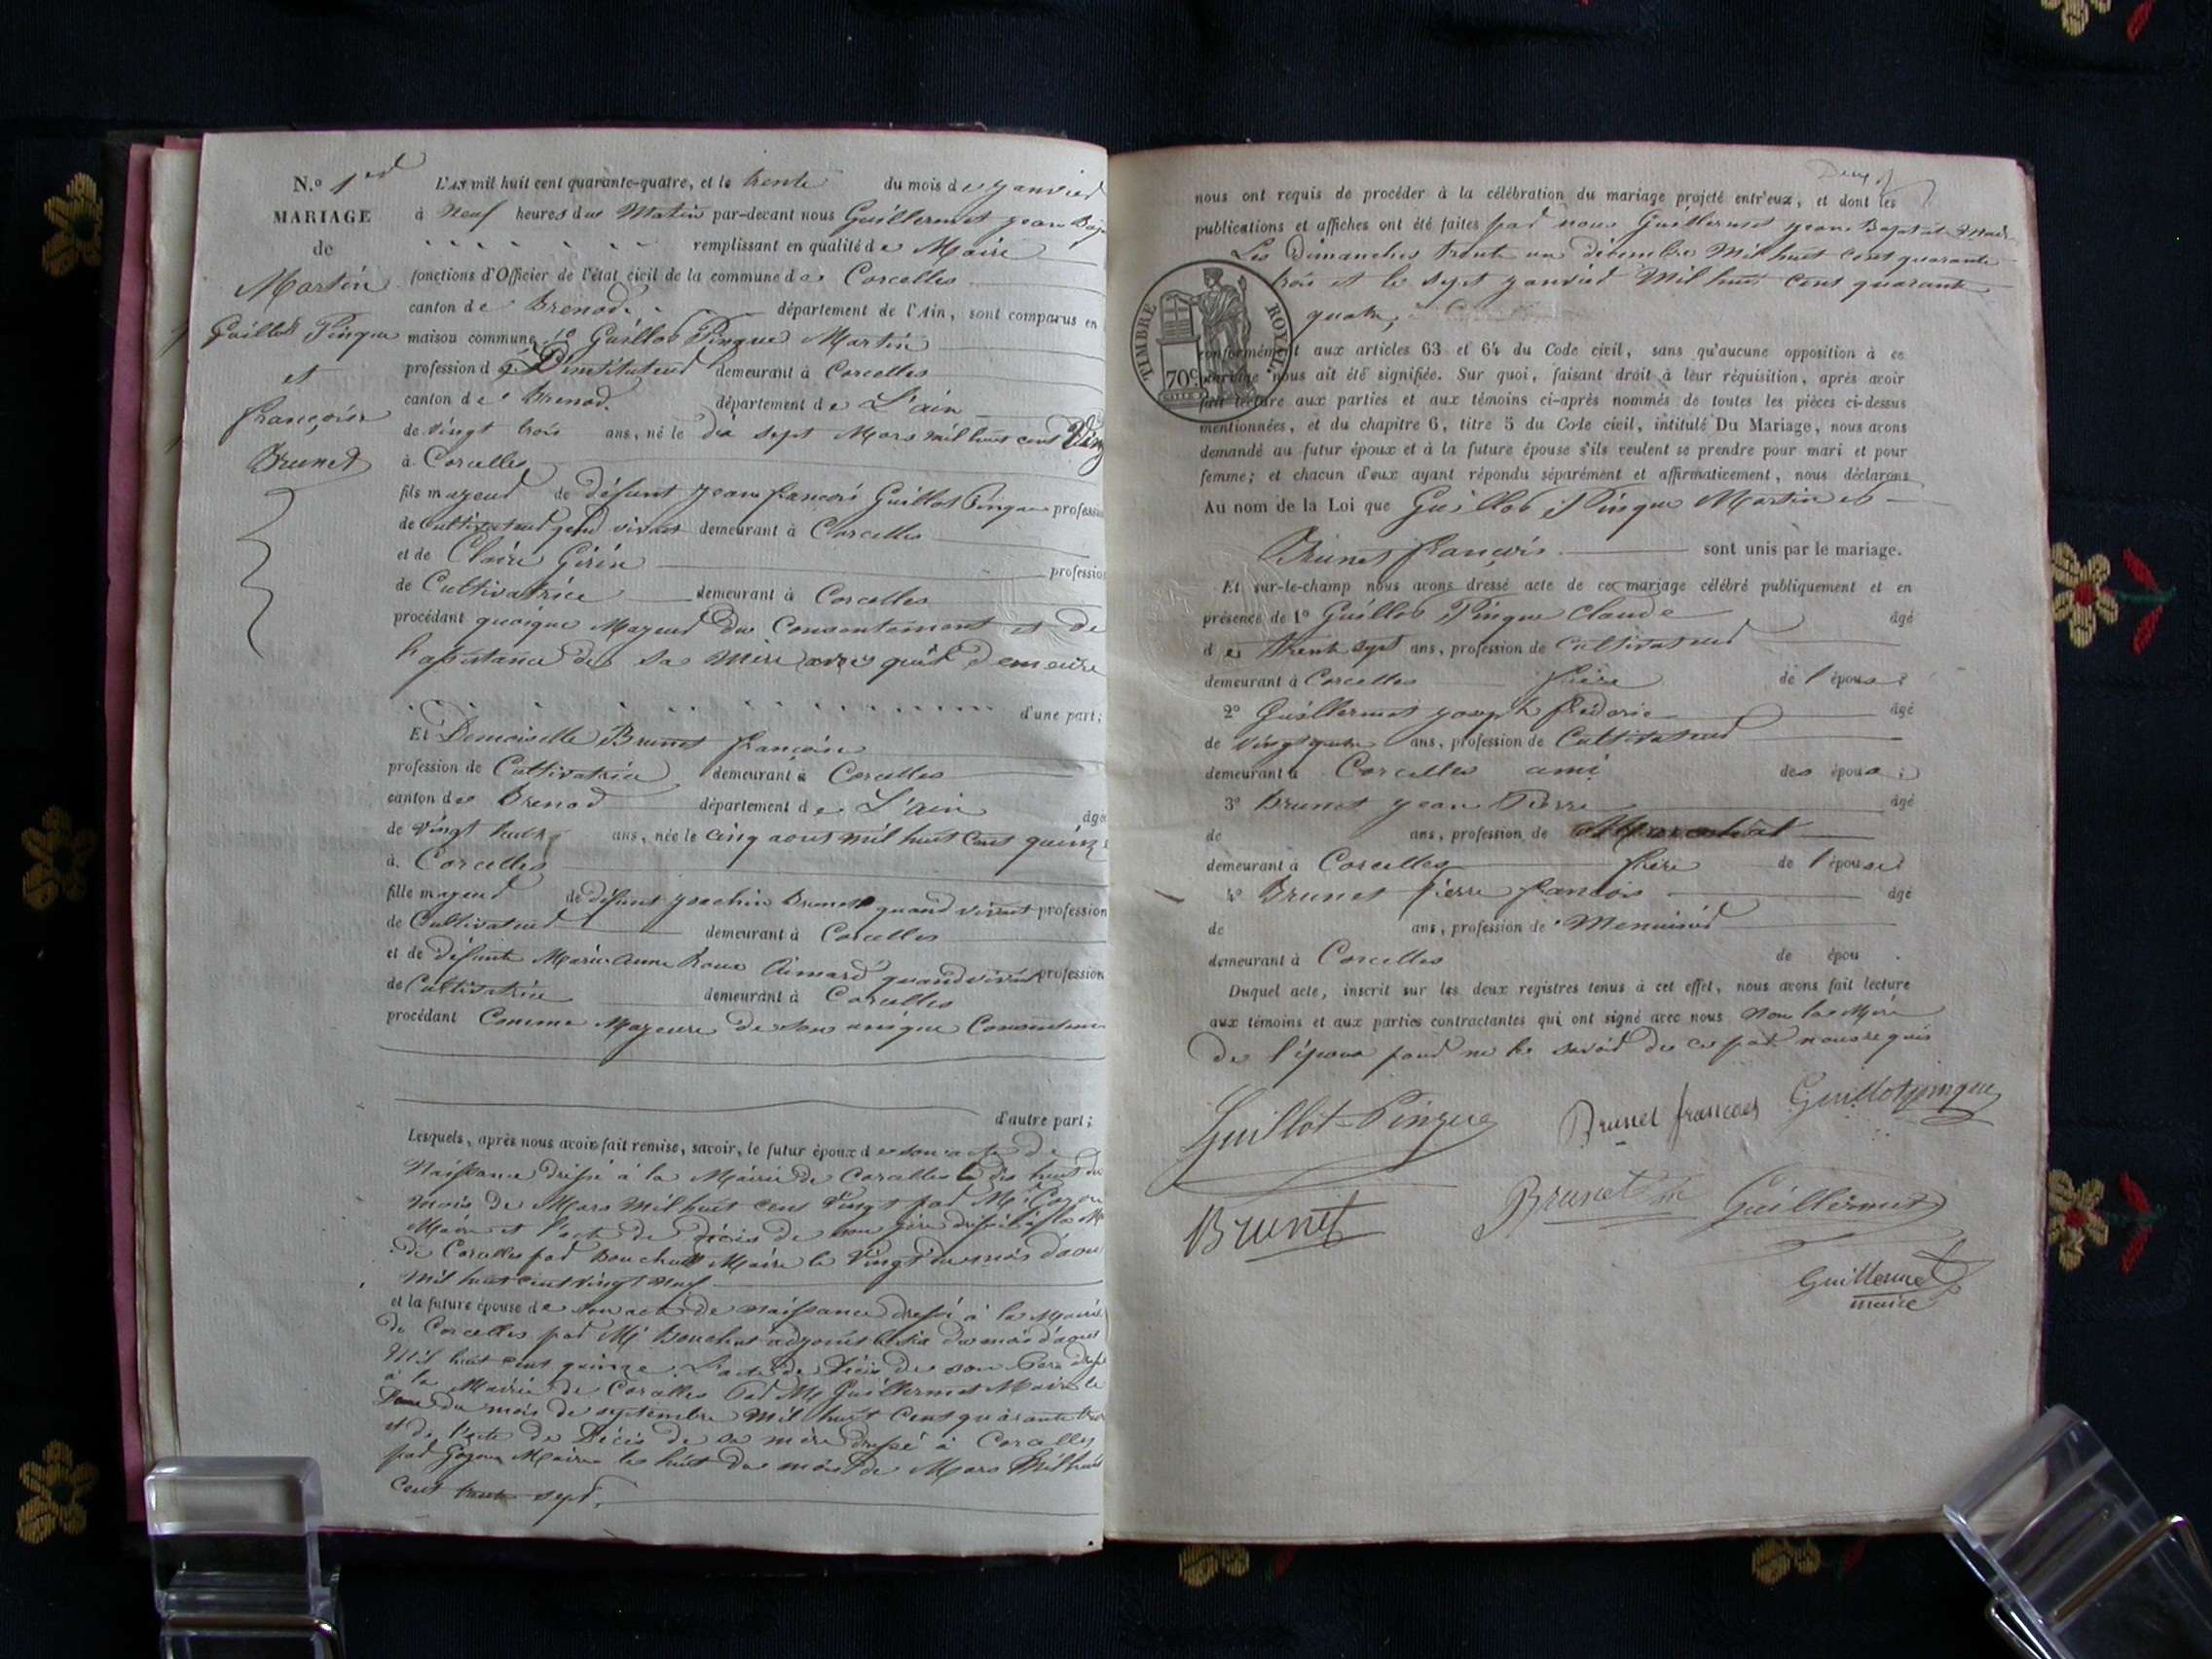 N.o 1er
MARIAGE
de
Martin
Guillot Pingue
et
françoise
Brunet
L'AN mil huit cent quarante-quatre, et le trente du mois de janvier
à Neuf heures du Matin par-devant nous Guillermet jean Bap
remplissant en qualité de Maire
fonctions d'Officier de l'état civil de la commune de Corcelles
canton de Brenod département de l'Ain, sont comparus en
maison commune 1o Guillot Pingue Martin
profession d'instituteur demeurant à Corcelles
canton de Brenod département de L'ain
de vingt trois ans, né le dix sept Mars mil huit cent Ving
à Corcelles
fils majeur de défunt jean françois Guillot Pingue profession
de Cultivateur quand vivait demeurant à Corcelles
et de Claire Girin profession
de Cultivatrice demeurant à Corcelles
procédant quoique Majeur du Consentement et de
l'assistance de sa mère avec qui il demeure
d'une part;
Et Demoiselle Brunet françoise
profession de Cultivatrice demeurant à Corcelles
canton de Brenod département de L'ain âgée
de vingt huit ans, née le cinq aout mil huit cent quinze
à Corcelles
fille majeur de défunt joachin Brunet quand vivait profession
de Cultivateur demeurant à Corcelles
et de défunte Marie anne Roux Aimard quand vivait profession
de Cultivatrice demeurant à Corcelles
procédant Comme Majeure de son unique Consentem
d'autre part;
Lesquels, après nous avoir fait remise, savoir, le futur époux de son acte de
Naissance dressé à la Mairie de Corcelles le dix huit du
mois de Mars mil huit cent Vingt par Mr Goyon
Maire et l'acte de décès de son père dressé à la M
de Corcelles par Bouchut Maire le Vingt du mois d'aou
Mil huit cent vingt neuf
et la future épouse de son acte de naissance dressé à la Mairie
de Corcelles par Mr Bouchut adjoint le six du mois d'aout
Mil huit cent quinze L'acte de Décès de son Père dressé
à la Mairie de Corcelles Par Mr Guillermet Maire le
du mois de septembre Mil huit Cent quarante
et de l'acte de Décès de sa mère dressé à Corcelles
par Goyon Maire le huit du mois de Mars Mil huit
Cent trente sept
nous ont requis de procéder à la célébration du mariage projeté entr'eux, et dont les
publications et affiches ont été faites par nous Guillermet jean Baptiste Maire
Les Dimanches trente un décembre Mil huit cent quarante
trois et le sept janvier Mil huit cent quarante
quatre,
TIMBRE ROYAL
70c
conformément aux articles 63 et 64 du Code civil, sans qu'aucune opposition à ce
mariage nous ait été signifiée. Sur quoi, faisant droit à leur réquisition, après avoir
fait lecture aux parties et aux témoins ci-après nommés de toutes les pièces ci-dessus
mentionnées, et du chapitre 6, titre 5 du Code civil, intitulé Du Mariage, nous avons
demandé au futur époux et à la future épouse s'ils veulent se prendre pour mari et pour
femme; et chacun d'eux ayant répondu séparément et affirmativement, nous déclarons
Au nom de la Loi que Guillot Pingue Martin et
Brunet françoise sont unis par le mariage.
Et sur-le-champ nous avons dressé acte de ce mariage célébré publiquement et en
présence de 1o Guillot Pingue Claude âgé
de trente sept ans, profession de Cultivateur
demeurant à Corcelles frère de l'époux;
2o Guillermet joseph frédéric âgé
de vingt quatre ans, profession de Cultivateur
demeurant à Corcelles ami des époux;
3o Brunet jean Pierre âgé
de ans, profession de
demeurant à Corcelles frère de l'épouse;
4o Brunet Pierre francois âgé
de ans, profession de Menuisier
demeurant à Corcelles de épou .
Duquel acte, inscrit sur les deux registres tenus à cet effet, nous avons fait lecture
aux témoins et aux parties contractantes qui ont signé avec nous Non la Mère
de l'époux pour ne le savoir de ce par nous requis
Guillot-Pingue Brunet francoise Guillotpingue
Brunet Brunet Guillermet
Guillermet
maire